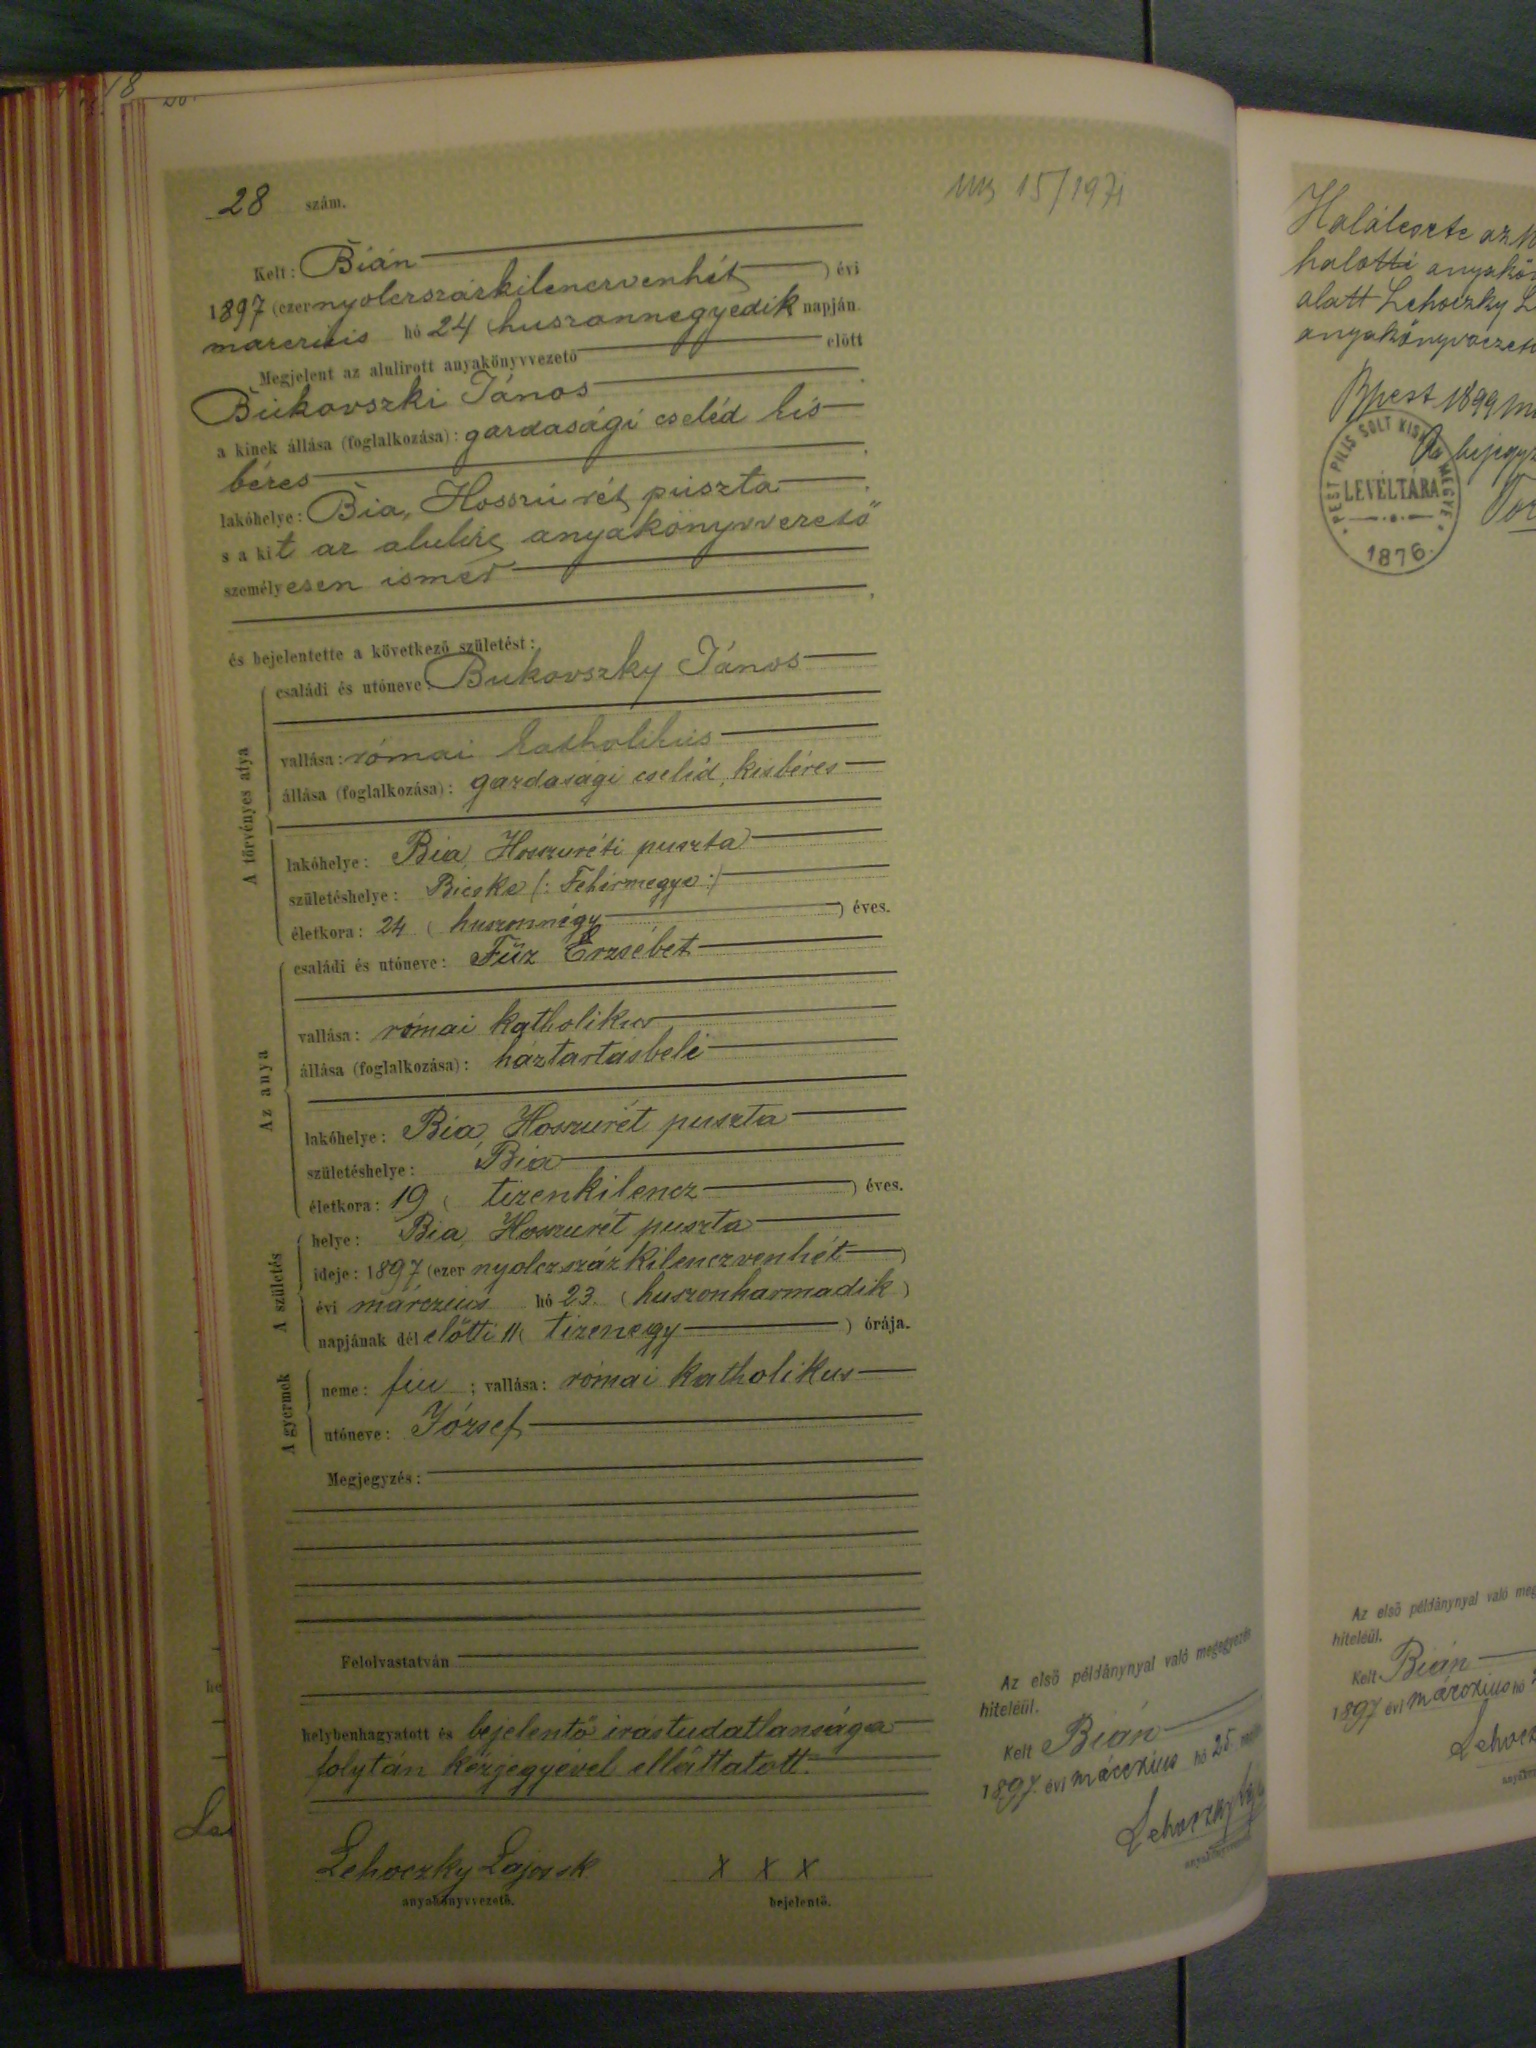 28 szám.
15/1971
Kelt: Bián
1897 (ezer nyolczszázkilenczvenhét) évi
marczius hó 24 (huszonnegyedik napján.
Megjelent az alulirott anyakönyvvezető előtt
Bukovszki János
a kinek állása (foglalkozása): gazdasági cseléd kis
béres
lakóhelye: Bia, Hosszú rét puszta
s a kit az alulirt anyakönyvvezető
személyesen ismer
és bejelentette a következő születést:
A törvényes atya
családi és utóneve: Bukovszky János
vallása: római katholikus
állása (foglalkozása): gazdasági cseléd, kisbéres
lakóhelye: Bia, Hosszuréti puszta
születéshelye: Bicske (: Fehérmegye :)
életkora: 24 (huszonnégy) éves.
Az anya
családi és utóneve: Füz Erzsébet
vallása: római katholikus
állása (foglalkozása): háztartásbeli
lakóhelye: Bia, Hosszurét puszta
születéshelye: Bia
életkora: 19 (tizenkilencz) éves.
A születés
helye: Bia, Hosszurét puszta
ideje: 1897 (ezer nyolczszáz kilenczvenhét)
évi márczius hó 23. (huszonharmadik)
napjának dél előtti 11 (tizenegy) órája.
A gyermek
neme: fiu; vallása: római katholikus
utóneve: József
Megjegyzés:
Felolvastatván
helybenhagyatott és bejelentő irástudatlansága
folytán kézjegyével elláttatott.
Lehoczky Lajos sk
anyakönyvvezető.
x x x
bejelentő.
Az első példánynyal való megegyezés
hiteléül.
Kelt Bián
1897. évi márczius hó 25.
Lehoczky
Halálesete az
halotti
alatt Lehoczky
Bpest 1899
PEST PILIS SOLT KISKUN MEGYE
LEVÉLTÁRA
1876.
Az első példánynyal való
hiteléül.
Kelt Bián
1897 évi márczius hó